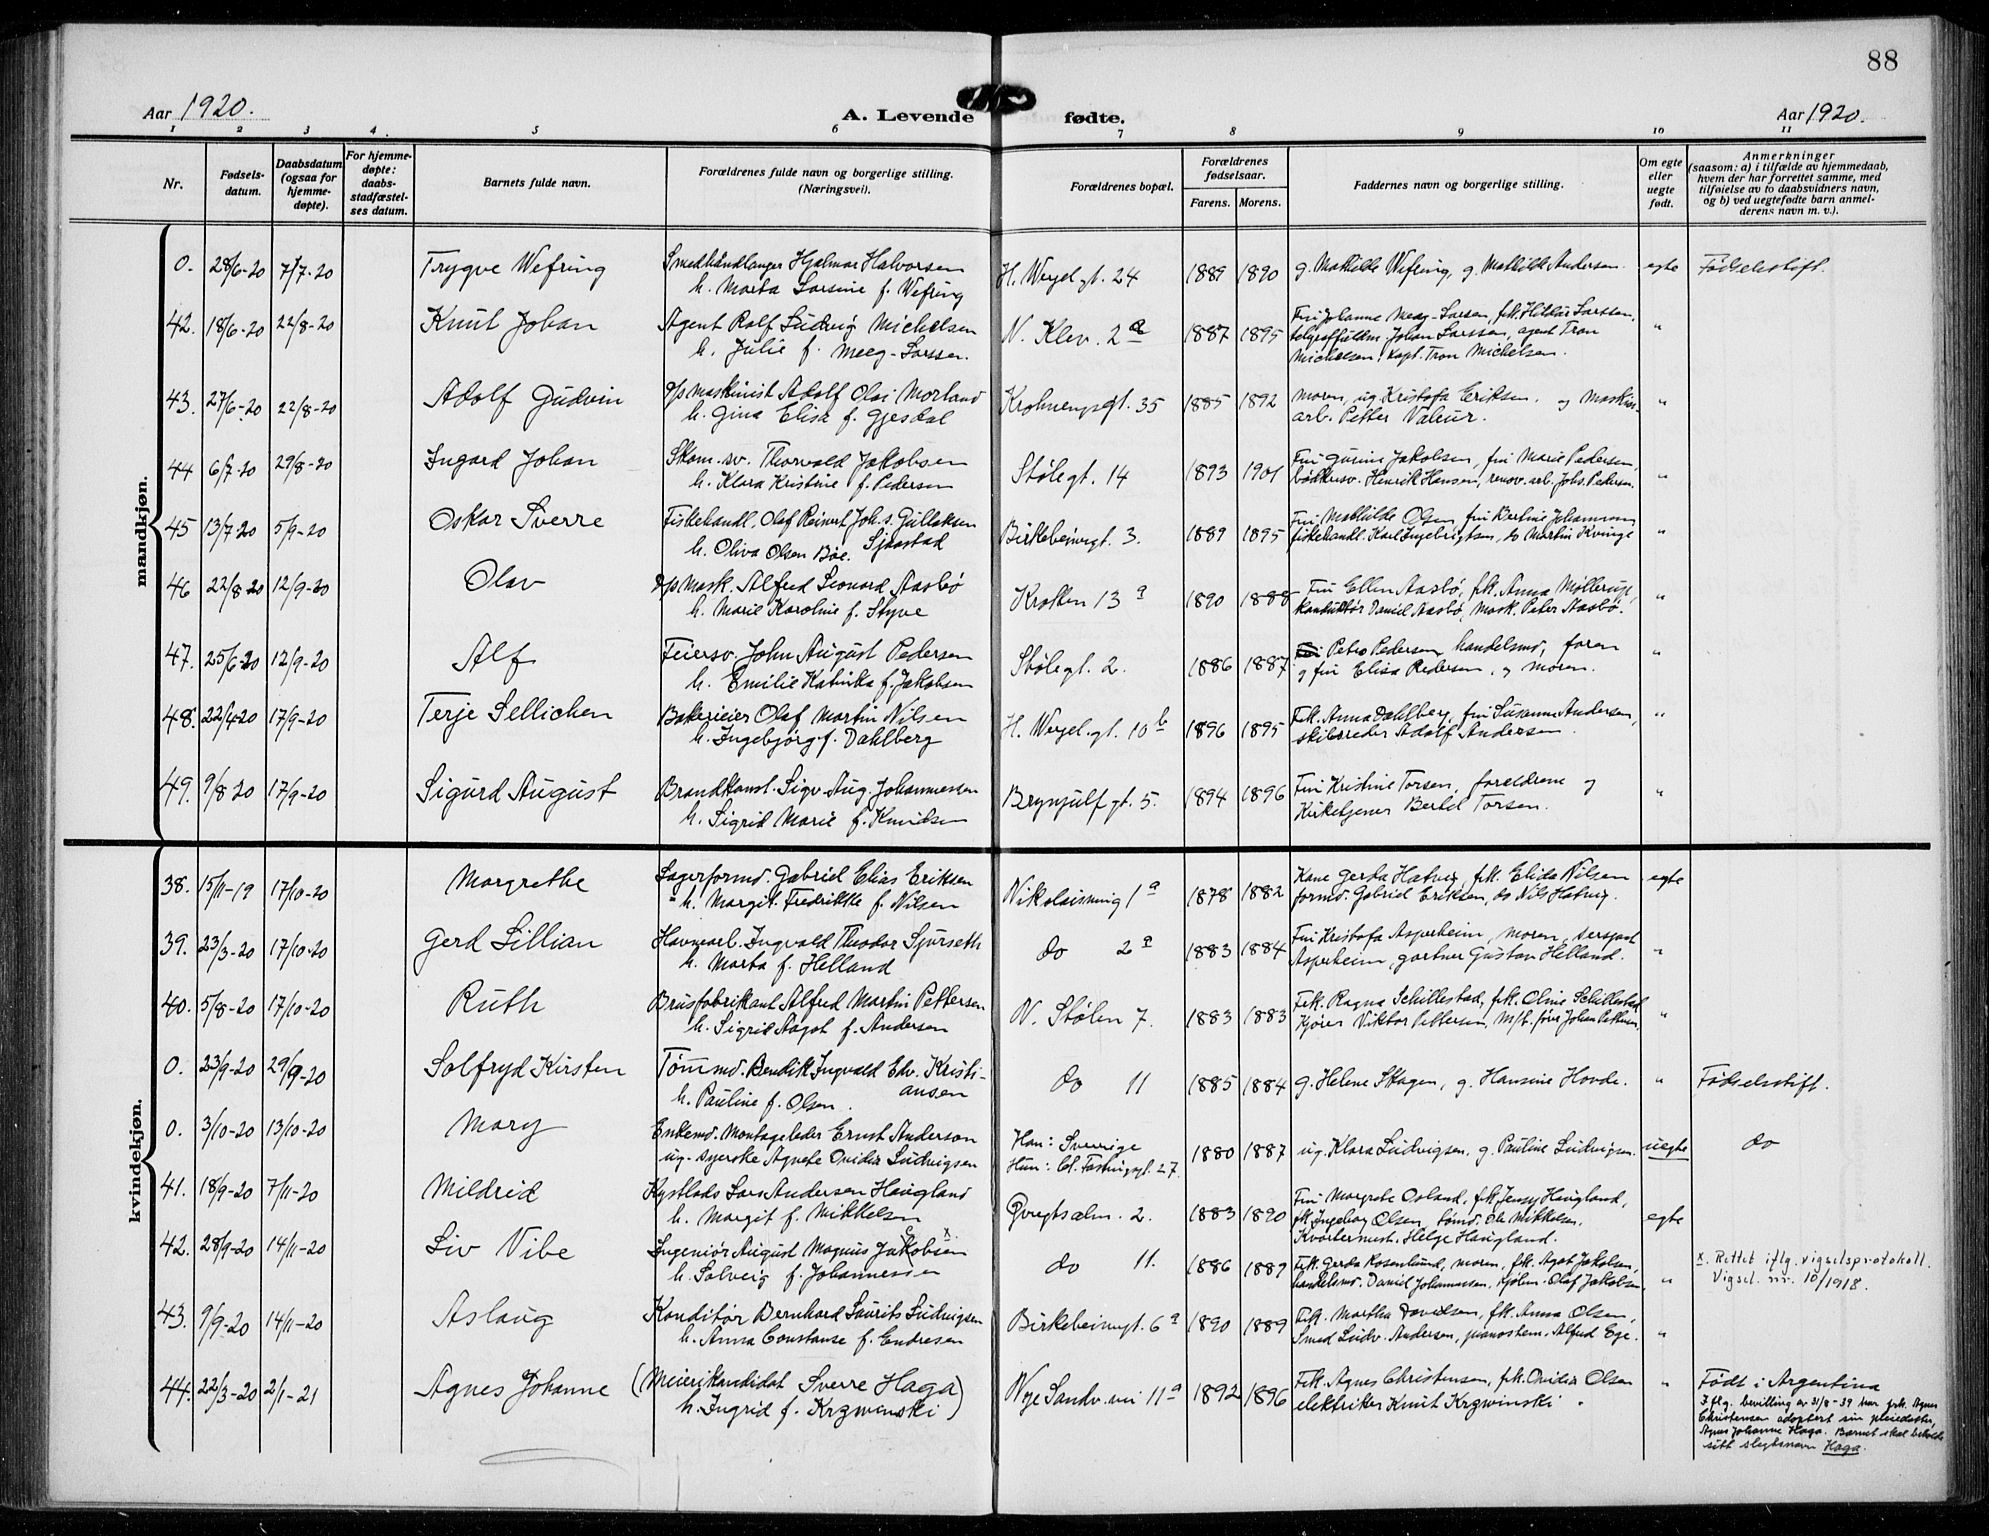 88
Aar 1920.
A. Levende fødte.
Aar 1920.
1 2 3 4. 5 6 7 8 9 10 11
Nr.
Fødsels-
datum.
Daabsdatum
(ogsaa for
hjemme-
døpte).
For hjemme-
døpte:
daabs-
stadfæstel-
ses datum.
Barnets fulde navn.
Forældrenes fulde navn og borgerlige stilling.
(Næringsvei).
Forældrenes bopæl.
Forældrenes
fødselsaar.
Farens. Morens.
Faddernes navn og borgerlige stilling.
Om egte
eller
uegte
født.
Anmerkninger
(saasom: a) i tilfælde av hjemmedaab,
hvem der har forrettet samme, med
tilføielse av to daabsvidners navn,
og b) ved uegtefødte barn anmel-
derens navn m. v.).
mandkjøn.
0. 28/6-20 7/7-20 Trygve Wefring
Smedhåndlanger Hjalmar Halvorsen
h. Marta Larsine f. Wefring
H. Wergel.gt. 24 1889 1890
g. Mathilde Wefring, g. Mathilde Andersen.
egte Fødselsstift.
42. 18/6-20 22/8-20 Knut Johan
Agent Rolf Ludvig Michelsen
h. Julie f. Meeg-Larssen.
N. Klev. 2a 1887 1895
Fru Johanne Meeg-Larsen, frk. Hildur Larssen,
telegraffuldm. Johan Larssen, agent Tron
Michelsen, kapt. Tron Michelsen.
"
43. 27/6-20 22/8-20 Adolf Gudvin
D/s maskinist Adolf Olai Morland
h. Gina Elisa f. Gjesdal
Krohnengsgt. 35 1885 1892
moren, ug. Kristofa Eriksen, og maskin-
arb. Petter Valeur.
"
44 6/7-20 29/8-20 Ingard Johan
Skom.sv. Thorvald Jakobsen
h. Klara Kristine f. Pedersen
Stølegt. 14 1893 1901
Fru Gurine Jakobsen, fru Marie Pedersen,
bødkersv. Henrik Hansen, renov. arb. Johs. Pedersen.
"
45 13/7-20 5/9-20 Oskar Sverre
Fiskehandl. Olaf Reinert Joh.s. Gullaksen
h. Oliva Olsen Bøe. Sjøastad
Birkebeinergt. 3. 1889 1895
Fru Mathilde Olsen, fru Bertine Johannesen
fiskehandl. Karl Ingebrigtsen, do Martin Kvinge
"
46 22/8-20 12/9-20 Olav
D/s mask. Alfred Leonard Aasbø
h. Marie Karoline f. Styve
Krokken 13a 1890 1888
Fru Ellen Aasbø, frk. Anna Møllerup,
konduktør Daniel Aasbø, mask. Peter Aasbø.
"
47. 25/6-20 12/9-20 Alf
Feiersv. John August Pedersen
h. Emilie Katinka f. Jakobsen
Stølegt. 2. 1886 1887
Peter Pedersen, handelsmd, faren
og fru Elisa Pedersen, og moren.
"
48. 22/4-20 17/9-20 Terje Sellichen
Bakereier Olaf Martin Nilsen
h. Ingebjørg f. Dahlberg
H. Wergel.gt. 10b 1896 1895
Frk. Anna Dahlberg, fru Susanne Andersen,
skibsreder Adolf Andersen.
"
49. 9/8 20 17/9-20 Sigurd August
Brandkonst. Sigv. Aug. Johannessen
h. Sigrid Marie f. Knudsen
Brynjulfgt. 5. 1894 1896
Fru Kristine Torsen, foreldrene og
Kirketjener Bertel Torsen.
"
kvindekjøn.
38. 15/11-19 17/10-20 Margrethe
Lagerformd. Gabriel Elias Eriksen
h. Margit Fredrikke f. Nilsen
Nikolaismug 1a 1878 1882
Kone Gerda Hatvig, frk. Elida Nilsen
formd. Gabriel Eriksen, do Nils Hatvig.
egte
39. 23/3-20 17/10-20 Gerd Lillian
Havnearb. Ingvald Theodor Sjurseth
h. Marta f. Helland
do 2a 1883 1884
Fru Kristofa Asperheim, moren, sersjant
Asperheim, gartner Gustav Helland.
"
40. 5/8-20 17/10-20 Ruth
Brusfabrikant Alfred Martin Pettersen
h. Sigrid Aagot f. Andersen
N. Stølen 7. 1883 1883
Frk. Ragna Schillestad, frk. Oline Schillestad
Kjører Viktor Pettersen, m/b. fører Johan Pettersen,
"
0. 23/9-20 29/9-20 Solfryd Kirsten
Tømmd. Bendik Ingvald Edv. Kristi-
ansen
h. Pauline f. Olsen.
do 11 1885 1884
g. Helene Skagen, g. Hansine Hovde.
" Fødselsstift.
0. 3/10-20 13/10-20 Mary
Enkemd. Montageleder Ernst Anderson
ug. syerske Agnete Ovidia Ludvigsen
Han: Sverrige
Hun: Cl. Fastingsgt. 27. 1880 1887
ug. Klara Ludvigsen, g. Pauline Ludvigsen.
uegte do
41. 18/9-20 7/11-20 Mildrid
Kystlods Lars Andersen Haugland
h. Margit f. Mikkelsen
Øvregtsalm. 2. 1883 1890
Fru Margrete Osland, frk. Jenny Haugland,
frk. Ingeborg Olsen, tømd. Ole Mikkelsen,
Kvartermest. Helge Haugland.
egte
42. 28/9-20 14/11-20 Liv Vibe
Ingeniør August Magnus Jakobsen x.
h. Solveig f. Johannessen
do 11. 1886 1889
Frk. Gerda Rosenlund, moren, frk. Agot Jakobsen,
handelsmd. Daniel Johannessen, kjøbm. Olaf Jakobsen
"
x. Rettet iflg. vigselsprotokoll.
Vigsel nr. 10/1918.
43. 9/9-20 14/11-20 Aslaug
Konditør Bernhard Laurits Ludvigsen
h. Anna Constanse f. Endresen
Birkebeinergt. 6a 1890 1889
Frk. Martha Davidsen, frk. Anna Olsen,
Smed Ludv. Andersen, pianostem. Alfred Ege.
"
44. 22/3-20 2/1-21 Agnes Johanne
(Meierikandidat Sverre Haga)
h. Ingrid f. Krzwinski)
Nye Sandv.vei 11a 1892 1896
Frk. Agnes Christensen, frk. Ovidia Olsen
elektriker Knut Krzwinski
"
Født i Argentina
Iflg. bevilling av 31/8-39 har frk. Agnes
Christensen adoptert sin pleiedatter,
Agnes Johanne Haga. Barnet skal beholde
sitt slegtsnavn Haga.